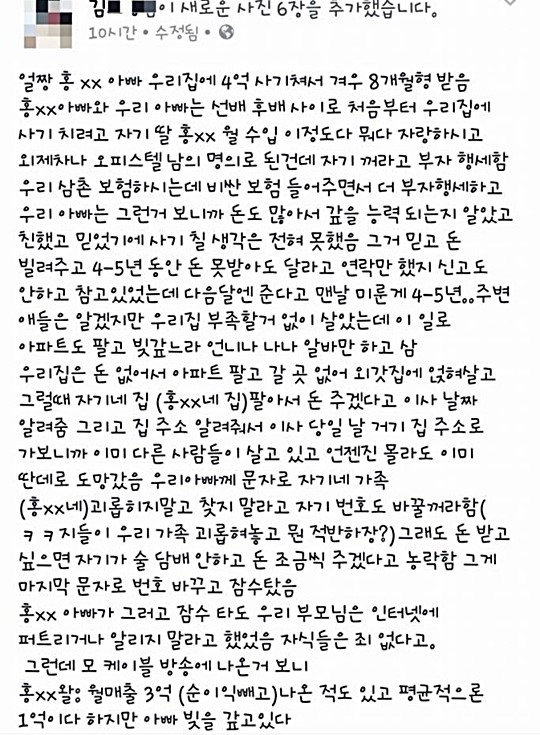 김 이 새로운 사진 6장을 추가했습니다.
10시간 • 수정됨 •
얼짱 홍 xx 아빠 우리집에 4억 사기쳐서 겨우 8개월형 받음
홍xx아빠와 우리 아빠는 선배 후배 사이로 처음부터 우리집에
사기 치려고 자기 딸 홍xx 월 수입 이정도다 뭐다 자랑하시고
외제차나 오피스텔 남의 명의로 된건데 자기 꺼라고 부자 행세함
우리 삼촌 보험하시는데 비싼 보험 들어주면서 더 부자행세하고
우리 아빠는 그런거 보니까 돈도 많아서 갚을 능력 되는지 알았고
친했고 믿었기에 사기 칠 생각은 전혀 못했음 그거 믿고 돈
빌려주고 4-5년 동안 돈 못받아도 달라고 연락만 했지 신고도
안하고 참고있었는데 다음달에 준다고 맨날 미룬게 4-5년..주변
애들은 알겠지만 우리집 부족할거 없이 살았는데 이 일로
아파트도 팔고 빚갚느라 언니나 나나 알바만 하고 삼
우리집은 돈 없어서 아파트 팔고 갈 곳 없어 외갓집에 얹혀살고
그럴때 자기네 집 (홍xx네 집)팔아서 돈 주겠다고 이사 날짜
알려줌 그리고 집 주소 알려줘서 이사 당일 날 거기 집 주소로
가보니까 이미 다른 사람들이 살고 있고 언젠진 몰라도 이미
딴데로 도망갔음 우리아빠께 문자로 자기네 가족
(홍xx네)괴롭히지말고 찾지 말라고 자기 번호도 바꿀꺼라함(
ㅋㅋ지들이 우리 가족 괴롭혀놓고 뭔 적반하장?)그래도 돈 받고
싶으면 자기가 술 담배 안하고 돈 조금씩 주겠다고 농락함 그게
마지막 문자로 번호 바꾸고 잠수탔음
홍xx 아빠가 그러고 잠수 타도 우리 부모님은 인터넷에
퍼트리거나 알리지 말라고 했었음 자식들은 죄 없다고.
그런데 모 케이블 방송에 나온거 보니
홍xx왈: 월매출 3억 (순이익빼고)나온 적도 있고 평균적으론
1억이다 하지만 아빠 빚을 갚고있다